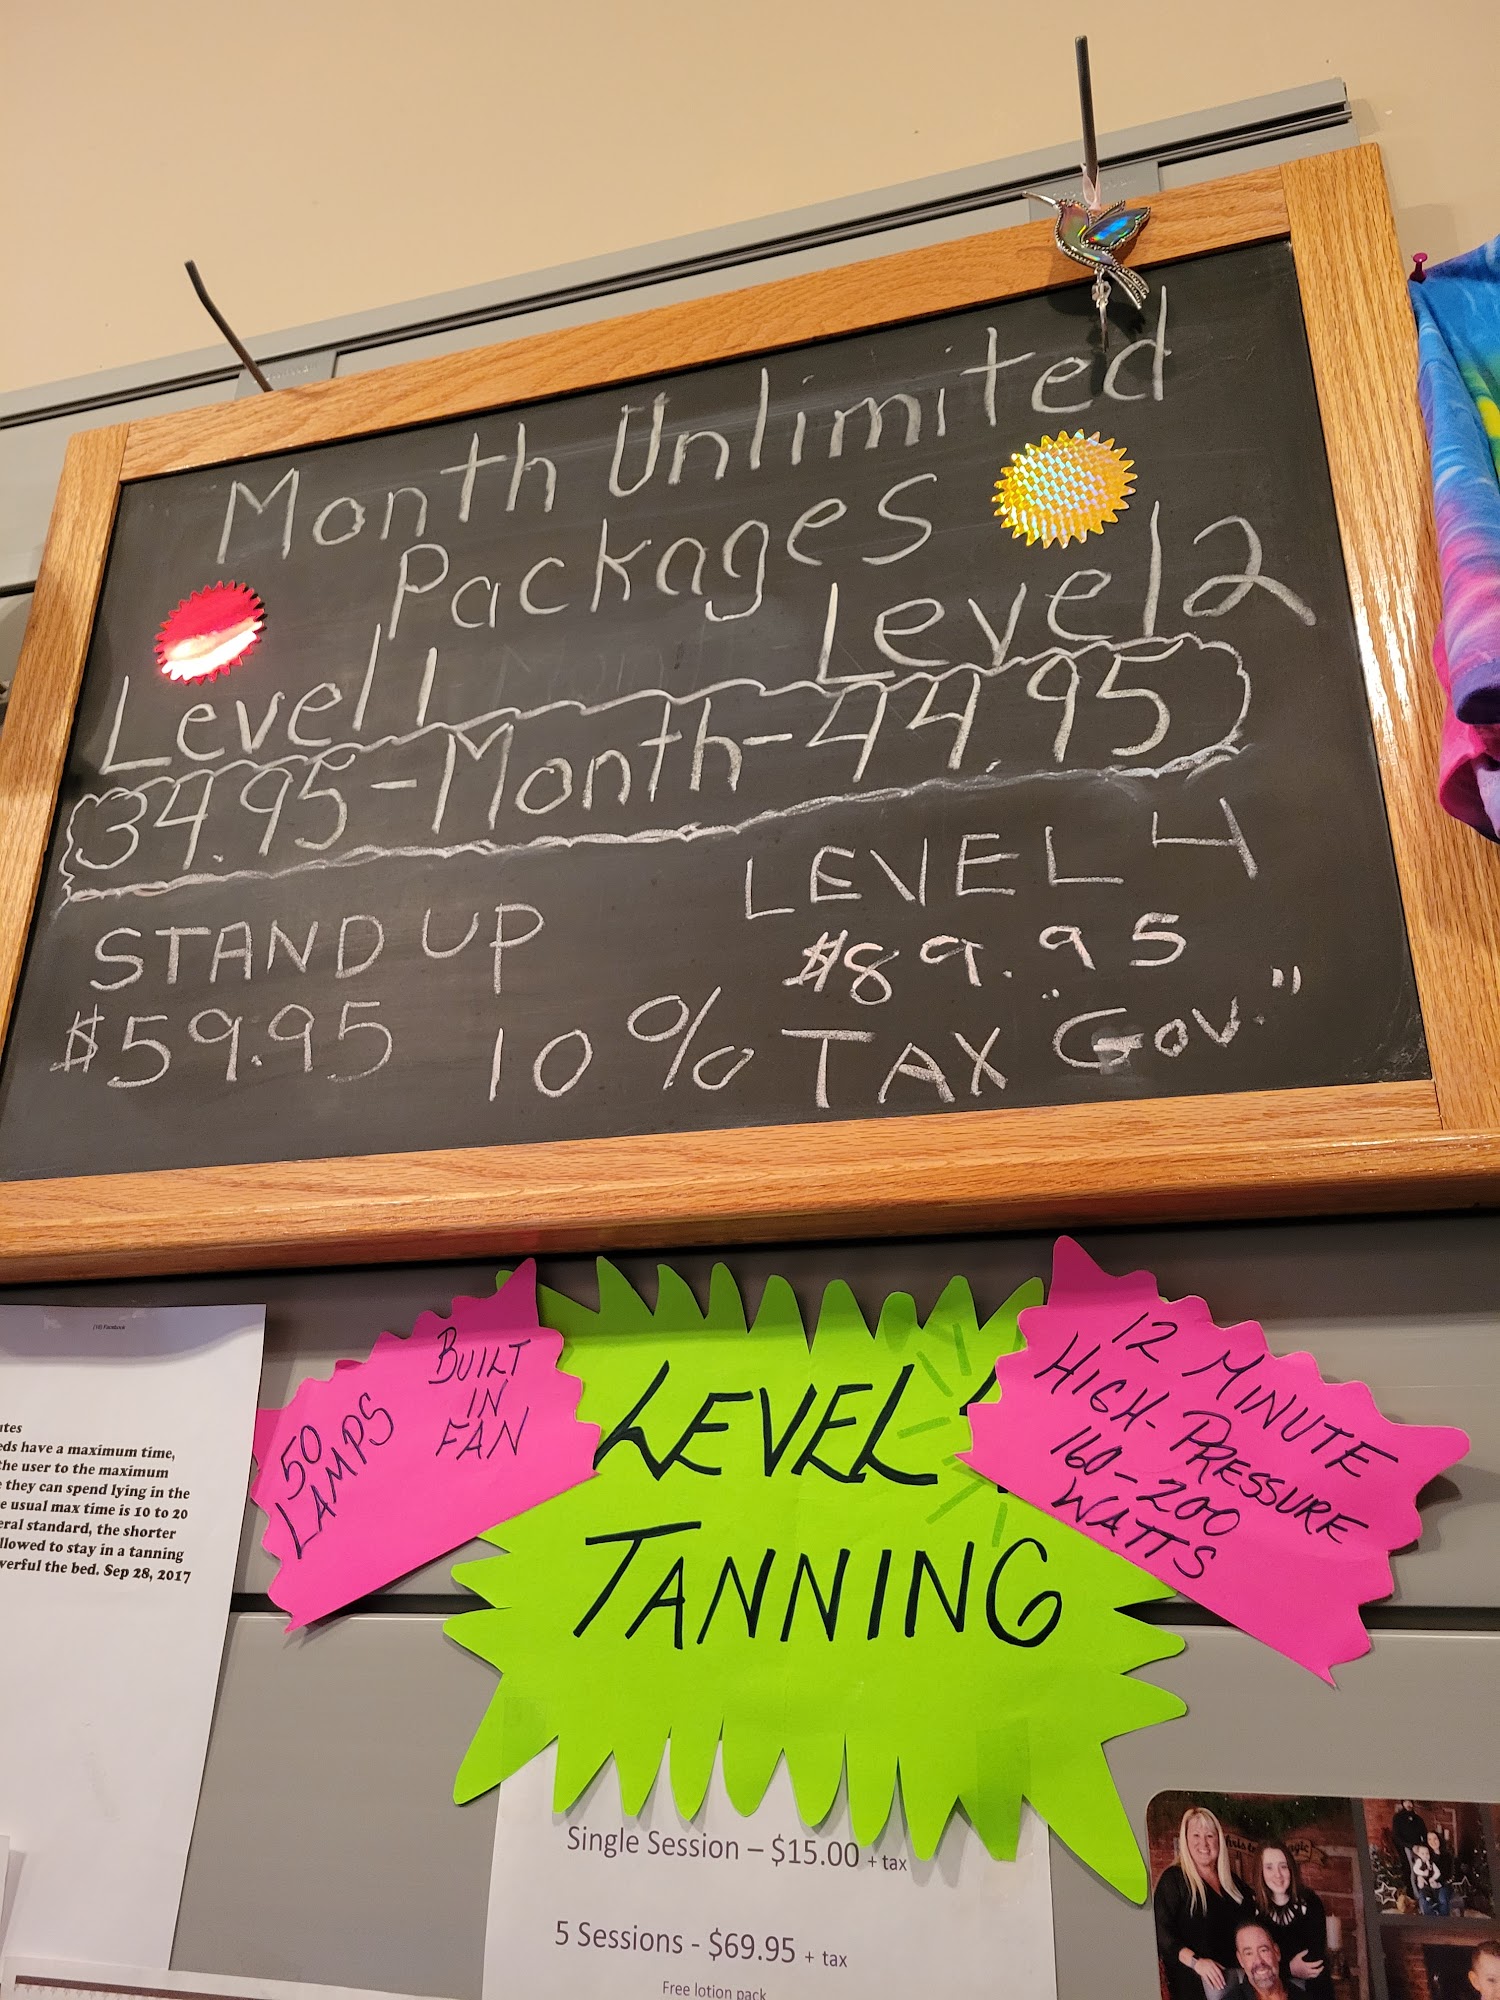 Month Unlimited
Packages
Level 1
Level 2
34.95-Month-44.95
STAND UP
$59.95
LEVEL 4
$89.95
10% TAX "Gov."
BUILT
IN
FAN
50
LAMPS
LEVEL
TANNING
12 MINUTE
HIGH-PRESSURE
160-200
WATTS
have a maximum time,
the user to the maximum
they can spend lying in the
usual max time is 10 to 20
standard, the shorter
to stay in a tanning
the bed. Sep 28, 2017
Single Session – $15.00 + tax
5 Sessions - $69.95 + tax
Free lotion pack